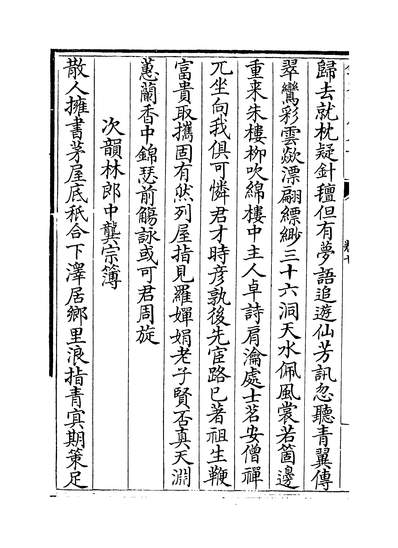 歸去就枕疑針氊但有夢語追遊仙芳訊忽聽青翼傳
翠鸞彩雲歘漂翩縹緲三十六洞天水佩風裳若箇邊
重来朱樓柳吹綿樓中主人卓詩肩瀹處士茗安僧禪
兀坐向我俱可憐君才時彦孰後先宦路已著祖生鞭
富貴取攜固有然列屋指見羅嬋娟老子賢否真天淵
蕙蘭香中錦瑟前觴詠或可君周旋
次韻林郎中龔宗簿
散人擁書茅屋底秖合下澤居鄉里浪指青㝠期策足